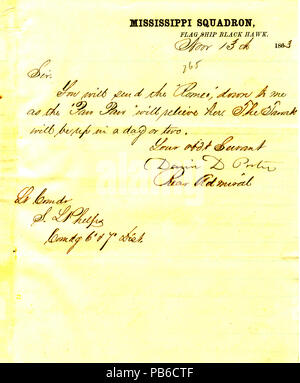 MISSISSIPPI SQUADRON,
FLAG SHIP BLACK HAWK.
Nov 13th 1863
265
Sir.
You will send the "Romeo" down to me
as the "Paw Paw" will relieve her. The Tawah
will be up in a day or two.
Your obdt Servant
David D Porter
Rear Admiral
Lt Comdr
S. L. Phelps
Comdg 6th & 7th Dist.
alamy
Image ID: PB6CTF
www.alamy.com